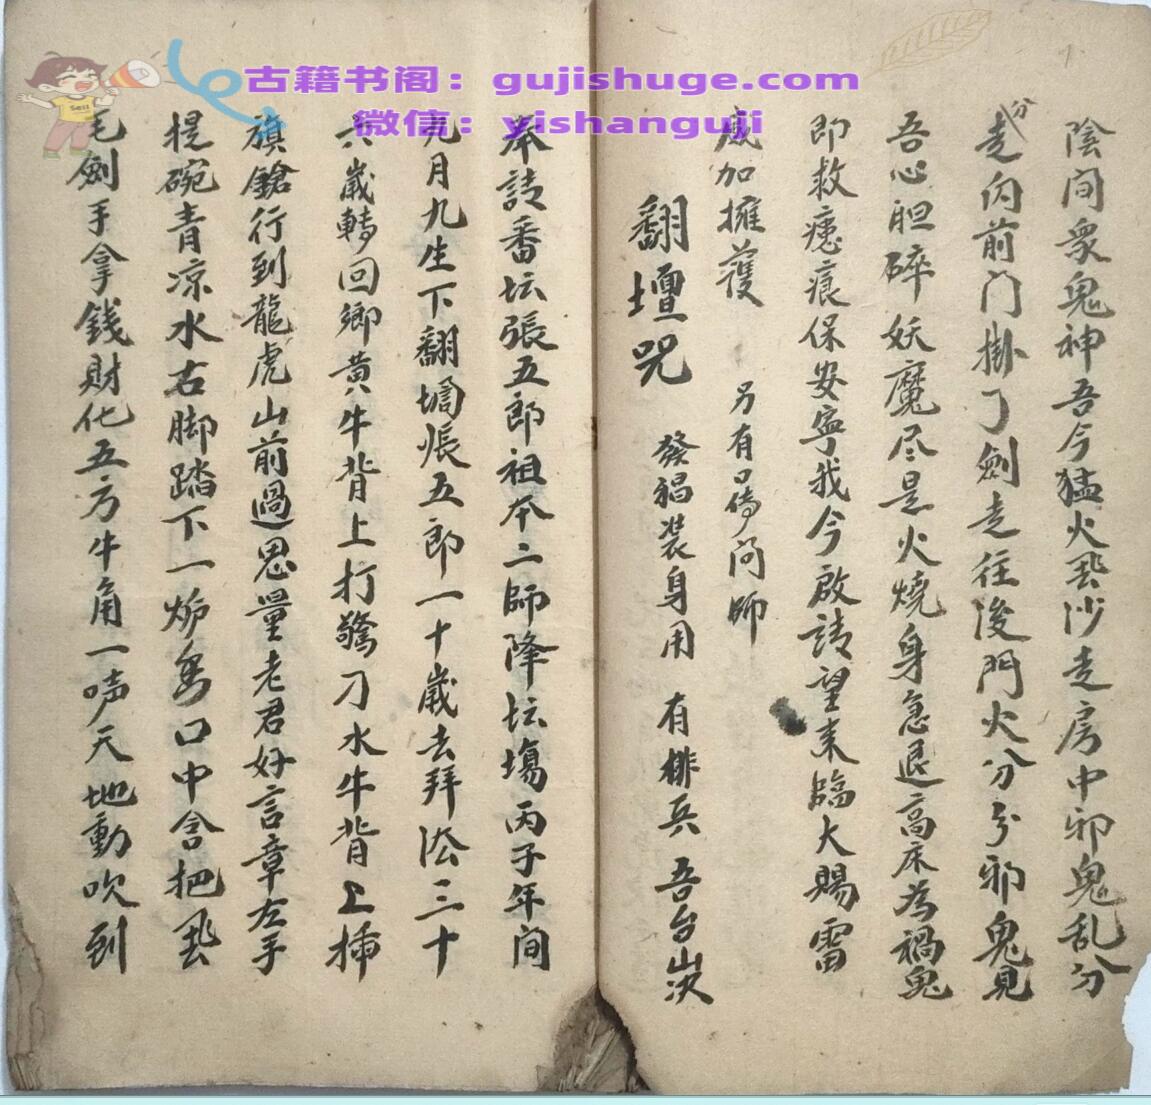 古籍书阁：gujishuge.com
微信：yishanguji
Sell
陰间衆鬼神吾今猛火飛沙走房中邪鬼乱分
分
走内前门掛了劍走往後門火分分邪鬼見
吾心胆碎妖魔尽是火燒身急退高床為禍鬼
即救瘧痕保安寧我今啟請望来臨大賜雷
威加擁護 另有口傳问師
翻壇咒 發猖装身用 有排兵 吾台山决
奉請番坛張五郎祖本二師降坛場丙子年间
九月九生下翻壇張五郎一十歲去拜法三十
六歲轉回鄉黄牛背上打鷩刀水牛背上插
旗鎗行到龍虎山前過思量老君好言章左手
提碗青凉水右脚踏下一炉香口中含把飛
毛劍手拿錢財化五方牛角一声天地動吹到